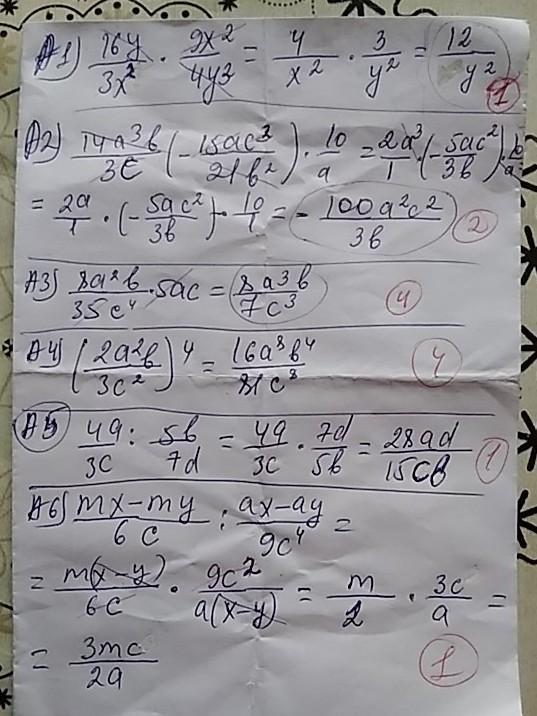 A1) 16y/3x² · 9x²/4y3 = 4/x² · 3/y² = 12/y² 1
A2) 14a³b/3c (-15ac³/21b²) · 10/a = 2a³/1 · (-5ac²/3b) · 10/a
= 2a/1 · (-5ac²/3b) · 10/1 = - 100a²c²/3b 2
A3) 8a²b/35c⁴ · 5ac = 8a³b/7c³ 4
A4) (2a²b/3c²)⁴ = 16a⁸b⁴/81c⁸ 4
A5 4a/3c : 5b/7d = 4a/3c · 7d/5b = 28ad/15cb 1
A6) mx-my/6c : ax-ay/9c⁴ =
= m(x-y)/6c · 9c²/a(x-y) = m/2 · 3c/a =
= 3mc/2a 1